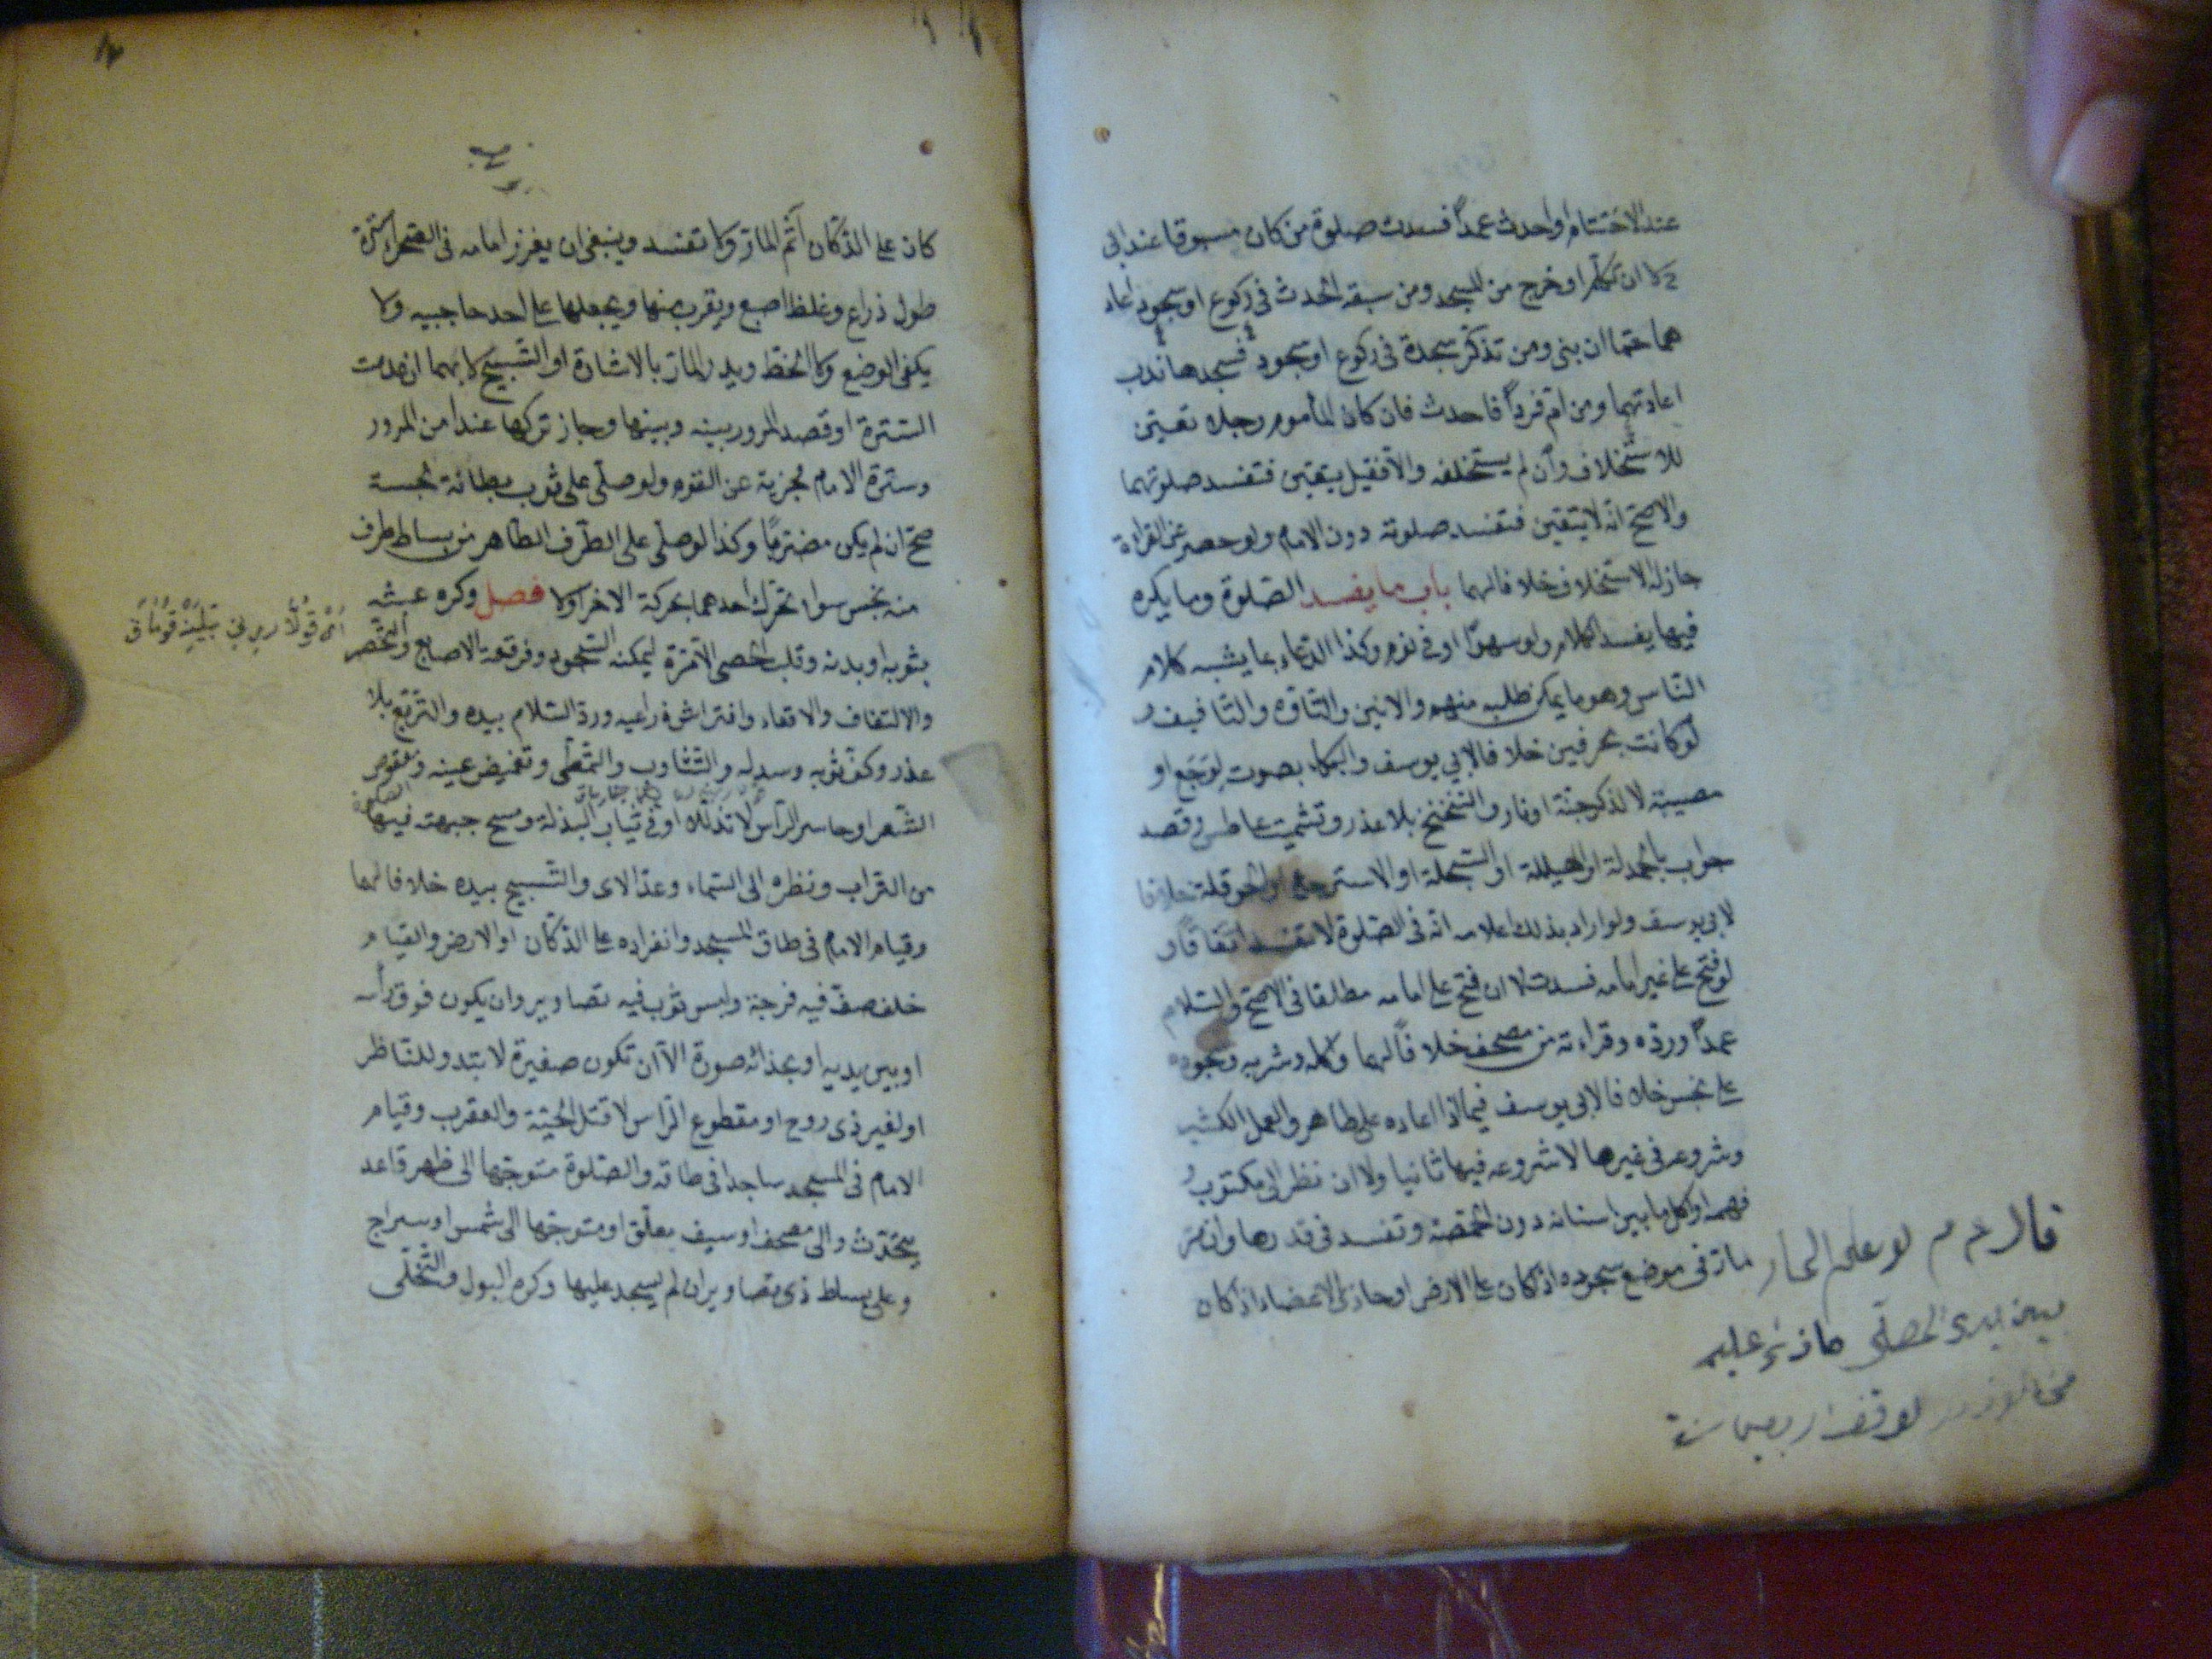 عند الاختتام او احدث عمداً فسدت صلوة من كان مسبوقا عند ابى
ح لا ان تكلم او خرج من المسجد ومن سبقه الحدث فى ركوع او سجود اعاد
هما حتما ان بنى ومن تذكر سجدة فى ركوع او سجود فسجدها ندب
اعادتهما ومن ام فرداً فاحدث فان كان المأموم رجلا تعين
للاستخلاف وان لم يستخلفه والا فقيل يتعين فتفسد صلوتهما
والاصح انه لا يتعين فتفسد صلوته دون الامام ولو حصر عن القراءة
جاز له الاستخلاف خلافا لهما باب ما يفسد الصلوة وما يكره
فيها يفسدها الكلام ولو سهوًا او فى نوم وكذا الدعاء بما يشبه كلام
الناس وهو ما يمكن طلبه منهم والانين والتاوه والتافيف و
لو كانت بحرفين خلافا لابي يوسف والبكاء بصوت لوجع او
مصيبة لا لذكر جنة او نار والتنحنح بلا عذر وتشميت عاطس وقصد
جواب بالحمدلة او الهيللة او السبحلة او الاسترجاع او الحوقلة خلافا
لابى يوسف ولو اراد بذلك اعلامه انه فى الصلوة لا تفسد اتفاقًا و
لو فتح على غير امامه فسدت لا ان فتح على امامه مطلقا فى الاصح والسلام
عمداً ورده وقراءته من مصحف خلافاً لهما واكله وشربه وسجوده
على نجس خلافا لابى يوسف فيما اذا اعاده على طاهر والعمل الكثير
وشروعه فى غيرها لا شروعه فيها ثانيا ولا ان نظر الى مكتوب و
فهمه او اكل ما بين اسنانه دون الحمصة وتفسد فى قدرها وان مر
مار فى موضع سجوده اذا كان على الارض او حاذى الاعضاء اذا كان
قال عم م لو علم المار
بين يدى المصلى ماذا عليه
من الوزر لوقف اربعين سنة
كان على الدكان أثم المار ولا تفسد وينبغى ان يغرز امامه فى الصحراء سترة
طول ذراع وغلظ اصبع ويقرب منها ويجعلها على احد حاجبيه ولا
يكفى الوضع ولا الخط ويدرأ المار بالاشارة او التسبيح لا بهما ان عدمت
السترة او قصد المرور بينه وبينها وجاز تركها عند أمن المرور
وسترة الامام مجزية عن القوم ولو صلى على ثوب بطانته نجسة
صح ان لم يكن مضربًا وكذا لو صلى على الطرف الطاهر من بساط طرف
منه نجس سواء تحرك احدهما بحركة الاخر او لا فصل وكره عبثه
بثوبه او بدنه وقلب الحصى الا مرة ليمكنه السجود وفرقعة الاصابع والتخصر
والالتفات والاقعاء وافتراش ذراعيه ورد السلام بيده والتربع بلا
عذر وكف ثوبه وسدله والتثاوب والتمطى وتغميض عينيه ومعقوص
الشعر او حاسر الرأس لا تذللا او فى ثياب البذلة ومسح جبهته فيها
من التراب ونظره الى السماء وعد الاى والتسبيح بيده خلافا لهما
وقيام الامام فى طاق المسجد وانفراده على الدكان او الارض والقيام
خلف صف فيه فرجة ولبس ثوب فيه تصاوير وان يكون فوق رأسه
او بين يديه او بحذائه صورة الا ان تكون صغيرة لا تبدو للناظر
او لغير ذى روح او مقطوع الراس لا قتل الحية والعقرب وقيام
الامام فى المسجد ساجدا فى طاقه والصلوة متوجها الى ظهر قاعد
يتحدث والى مصحف او سيف معلق او متوجها الى شمس او سراج
وعلى بساط ذى تصاوير ان لم يسجد عليها وكره البول والتخلى